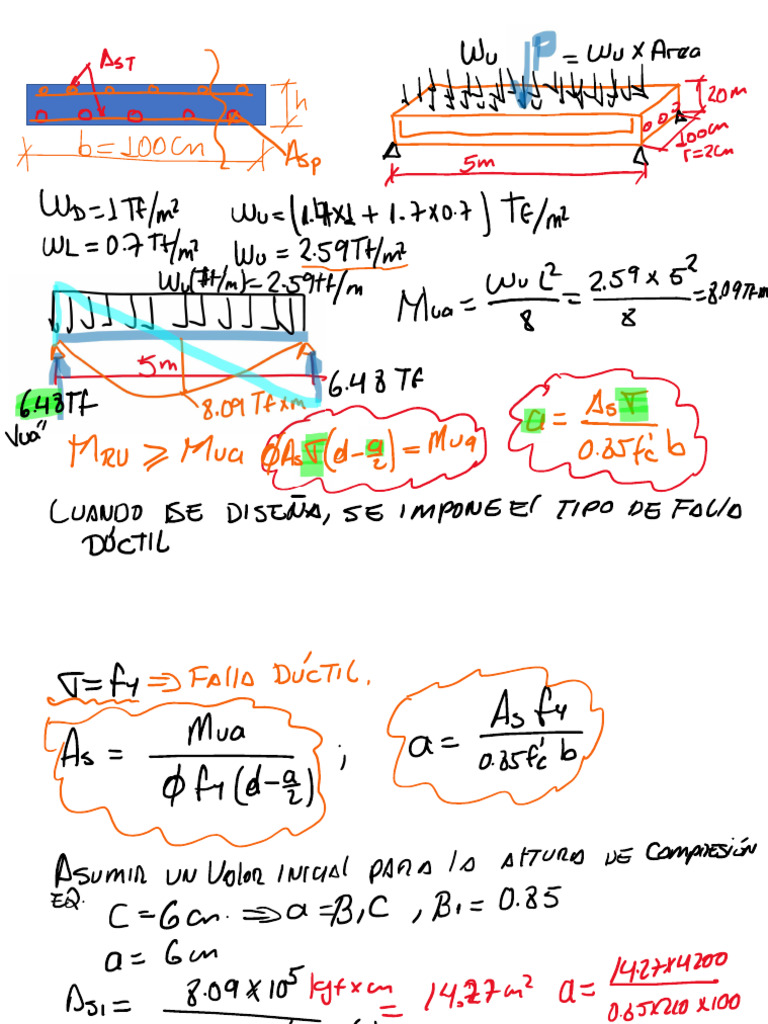 AST
h
b = 100cm
Asp
Wu P = Wu x Area
20m
100cm
r=2cm
5m
WD = 1 Tf/m²
WL = 0.7 Tf/m²
Wu = (1.4x1 + 1.7x0.7) Tf/m²
Wu = 2.59 Tf/m²
Wu (Tf/m) = 2.59 tf/m
Mua = Wu L²/8 = 2.59 x 5²/8 = 8.09 Tf·m
5m
6.48 Tf
6.48 Tf
8.09 Tf x m
MRU ≥ Mua ϕAs∇(d - a/2) = Mua
a = As∇/0.85f'c b
CUANDO SE DISEÑA, SE IMPONE El TIPO DE FALLA
DÚCTIL
∇ = fy ⇒ FALLA DÚCTIL.
As = Mua/ϕ fy (d - a/2) ;
a = As fy/0.85f'c b
ASUMIR UN VALOR INICIAL PARA LA ALTURA DE COMPRESIÓN
EQ.
C = 6 cm. ⇒ a = B₁C , B₁ = 0.85
a = 6 cm
As1 = 8.09 x 10⁵ kgf x cm = 14.27 cm² a = 14.27x4200/0.85x210x100